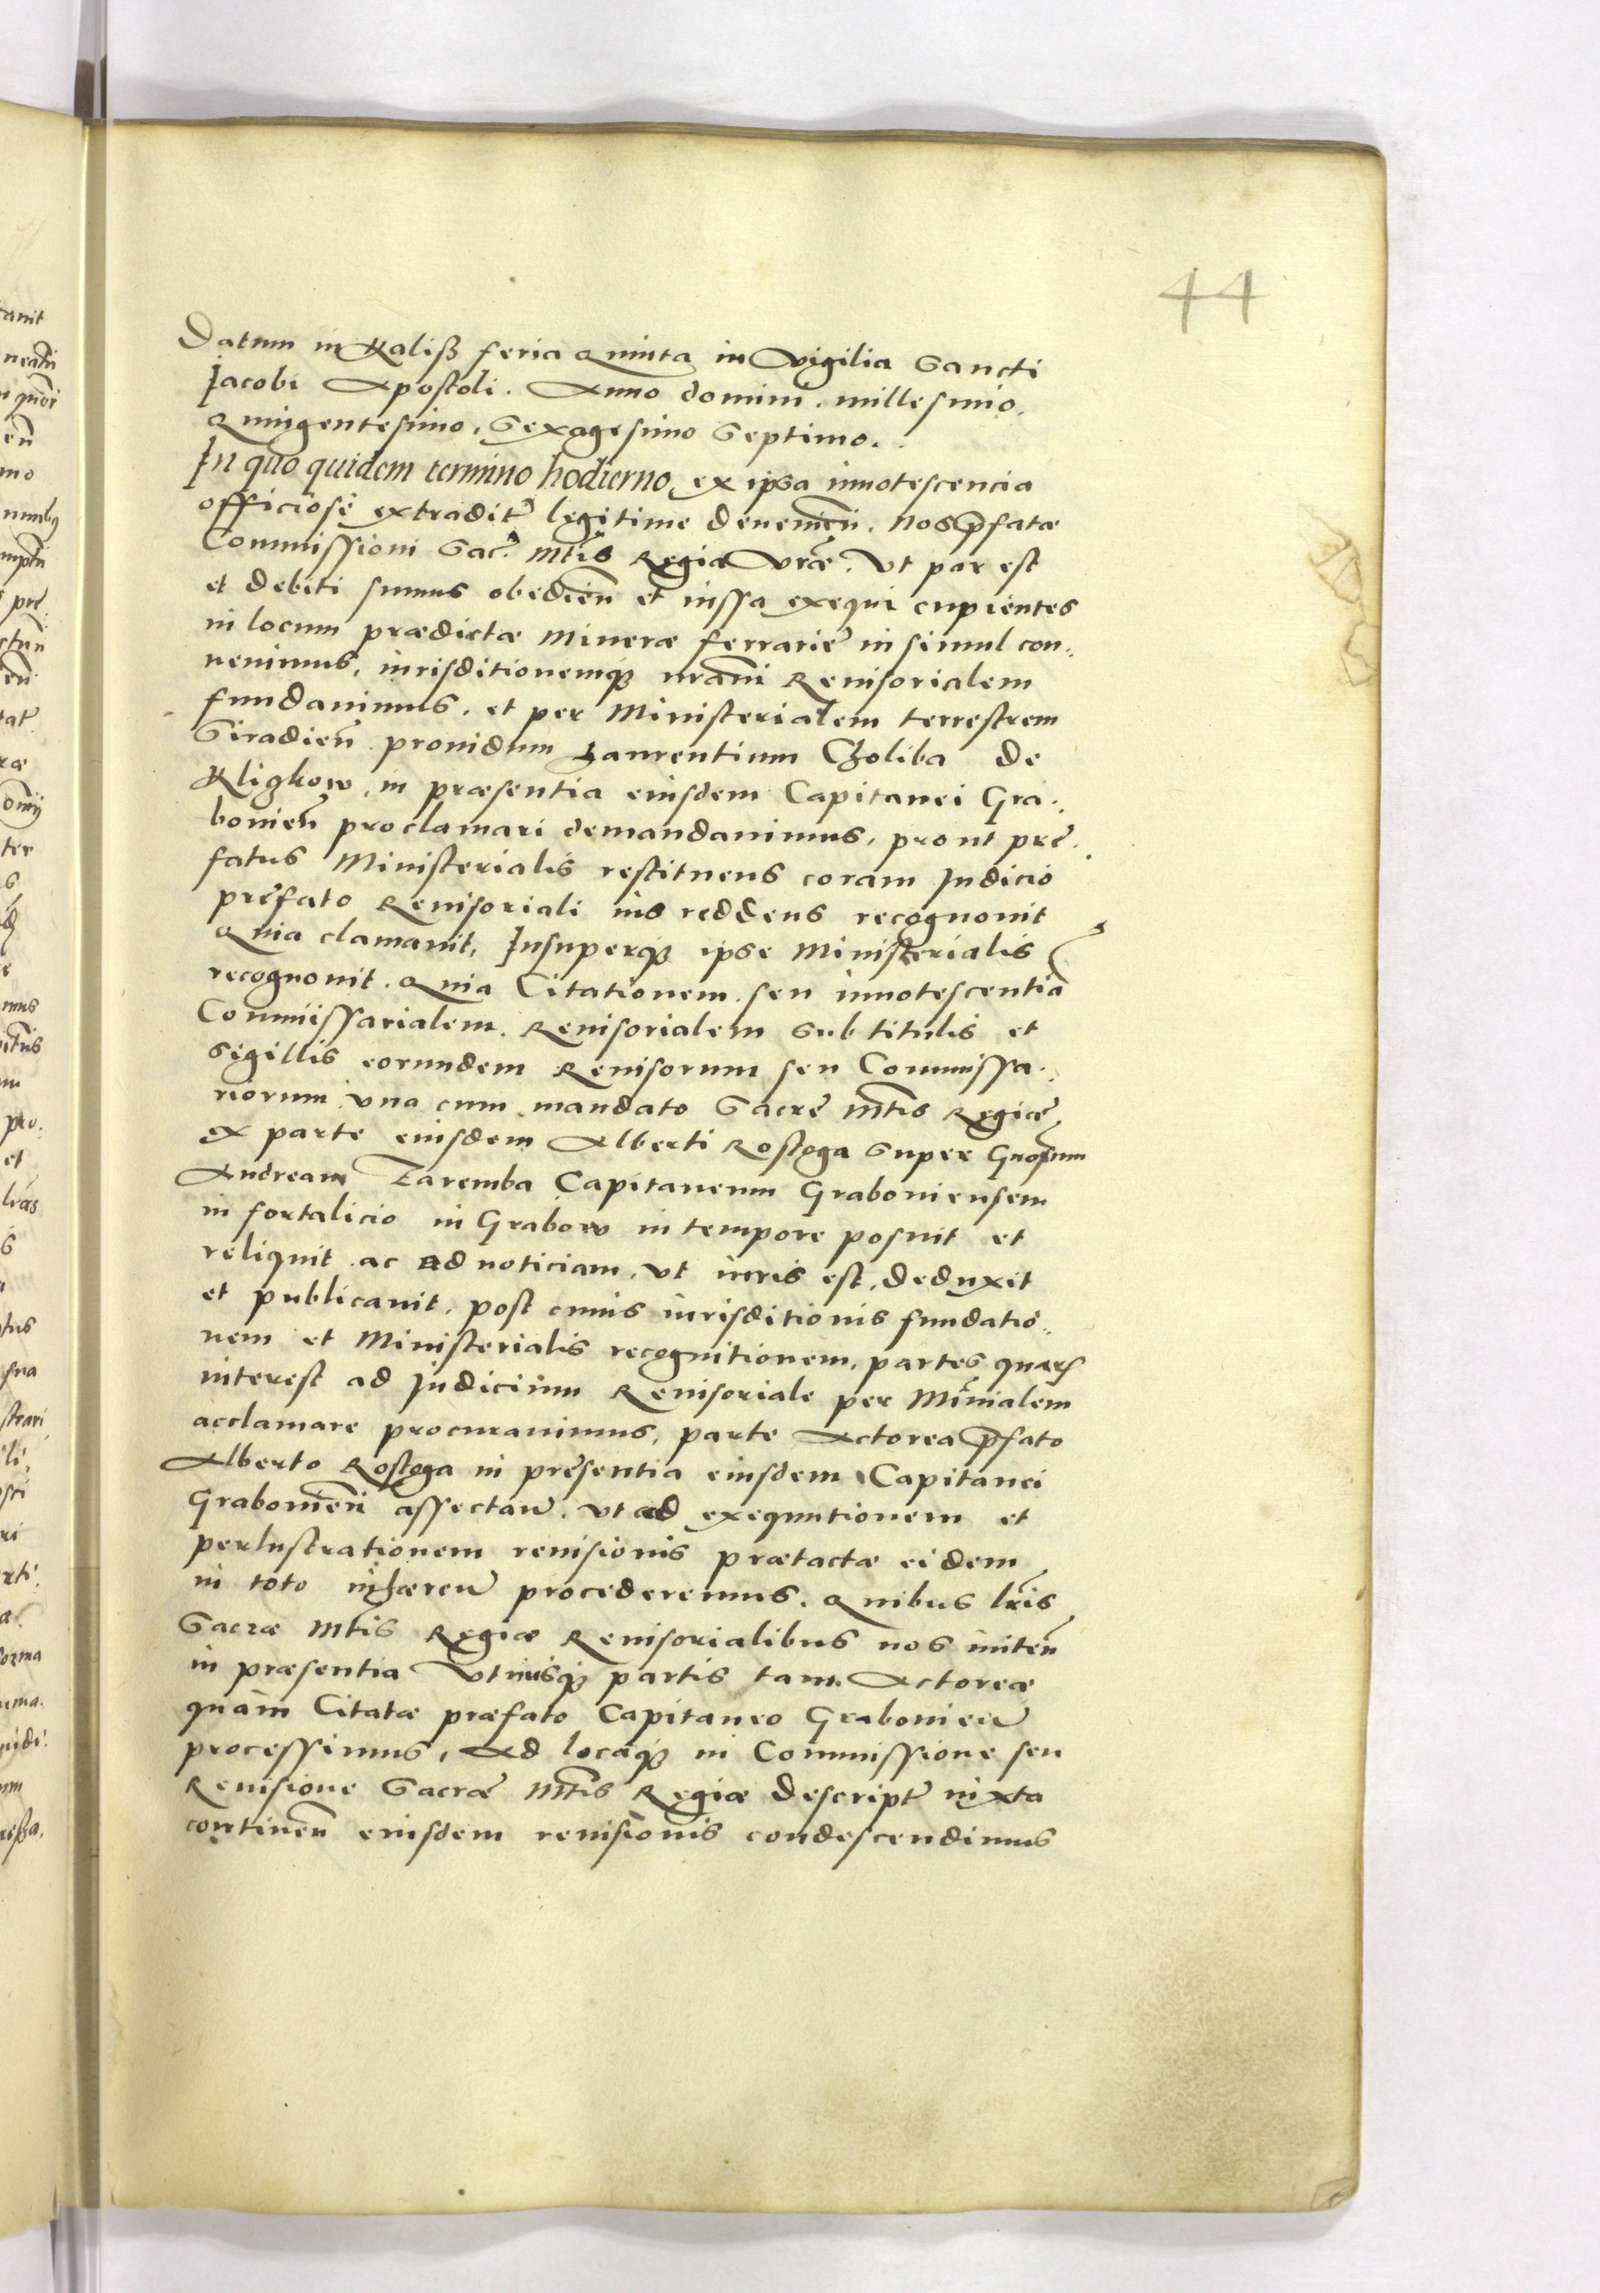 44
Datum in Kaliß feria Quinta in Vigilia Sancti
Jacobi Apostoli. Anno domini. millesimo.
Quingentesimo, Sexagesimo Septimo.
In quo quidem termino hodierno, ex ipsa innotescencia
officiose extradit̃ legitime devenień. Nos p̃fatæ
Commissioni Sac. Mtis Regiæ Vræ. Vt par est
et debiti sumus obedień et iussa exequi cupientes
in locum prædictæ Mineræ ferrarię in simul con„
venimus, iurisditionemq nram Revisorialem
fundavimus. et per Ministerialem terrestrem
Siradień providum Laurentium Choliba de
Kligkow, in præsentia eiusdem Capitanei Gra„
bovień proclamari demandavimus, prout prę„
fatus Ministerialis restituens coram Judicio
pręfato Revisoriali ius reddens recognovit
Quia clamavit, Insuperq ipse Ministerialis
recognovit. Quia Citationem seu innotescentiã
Commissarialem. Revisorialem sub titulis et
sigillis eorundem Revisorum seu Commissa„
riorum vna cum mandato Sacrę Mtis Regię
ex parte eiusdem Alberti Rostoga super Gnosum
Andream Zaremba Capitaneum Graboviensem
in fortalicio in Grabow in tempore posuit et
reliquit ac ad noticiam, vt iuris est, deduxit
et publicavit, post cuius iurisditionis fundatio„
nem et Ministerialis recognitionem, partes quarũ
interest ad Judicium Revisoriale per Minialem
acclamare procuravimus, parte Actorea p̃fato
Alberto Rostoga in pręsentia eiusdem Capitanei
Grabovień affectań. vt ad exequutionem et
perlustrationem revisionis prætactæ eidem
in toto inhæreń procederemus. Quibus lris
Sacræ Mtis Regiæ Revisorialibus nos initeń
in præsentia Vtriusq partis tam Actoreæ
quàm Citatæ præfato Capitaneo Grabovień
processimus, Ad locaq in Commissione seu
Revisione Sacræ Mtis Regiæ descript̃ iuxta
continen̄ eiusdem revisionis condescendimus